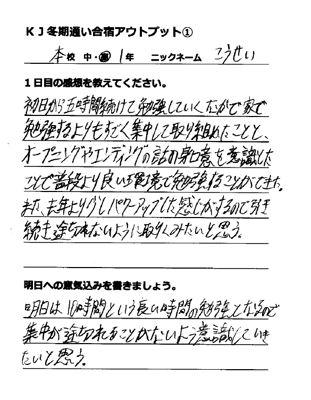 KJ冬期通い合宿アウトプット①
本校 中・高 1年 ニックネーム こうせい
1日目の感想を教えてください。
初日から五時間続けて勉強していくなかで家で
勉強するよりもすごく集中して取り組めたことと、
オープニングやエンディングの話の熱意を意識した
ことで普段より良い環境で勉強することができた。
また、去年よりグレードパワーアップした感じがするので引き
続き途切れないように取りくみたいと思う。
明日への意気込みを書きましょう。
明日は10時間という長い時間の勉強となるので
集中が途切れることがないよう意識していき
たいと思う。